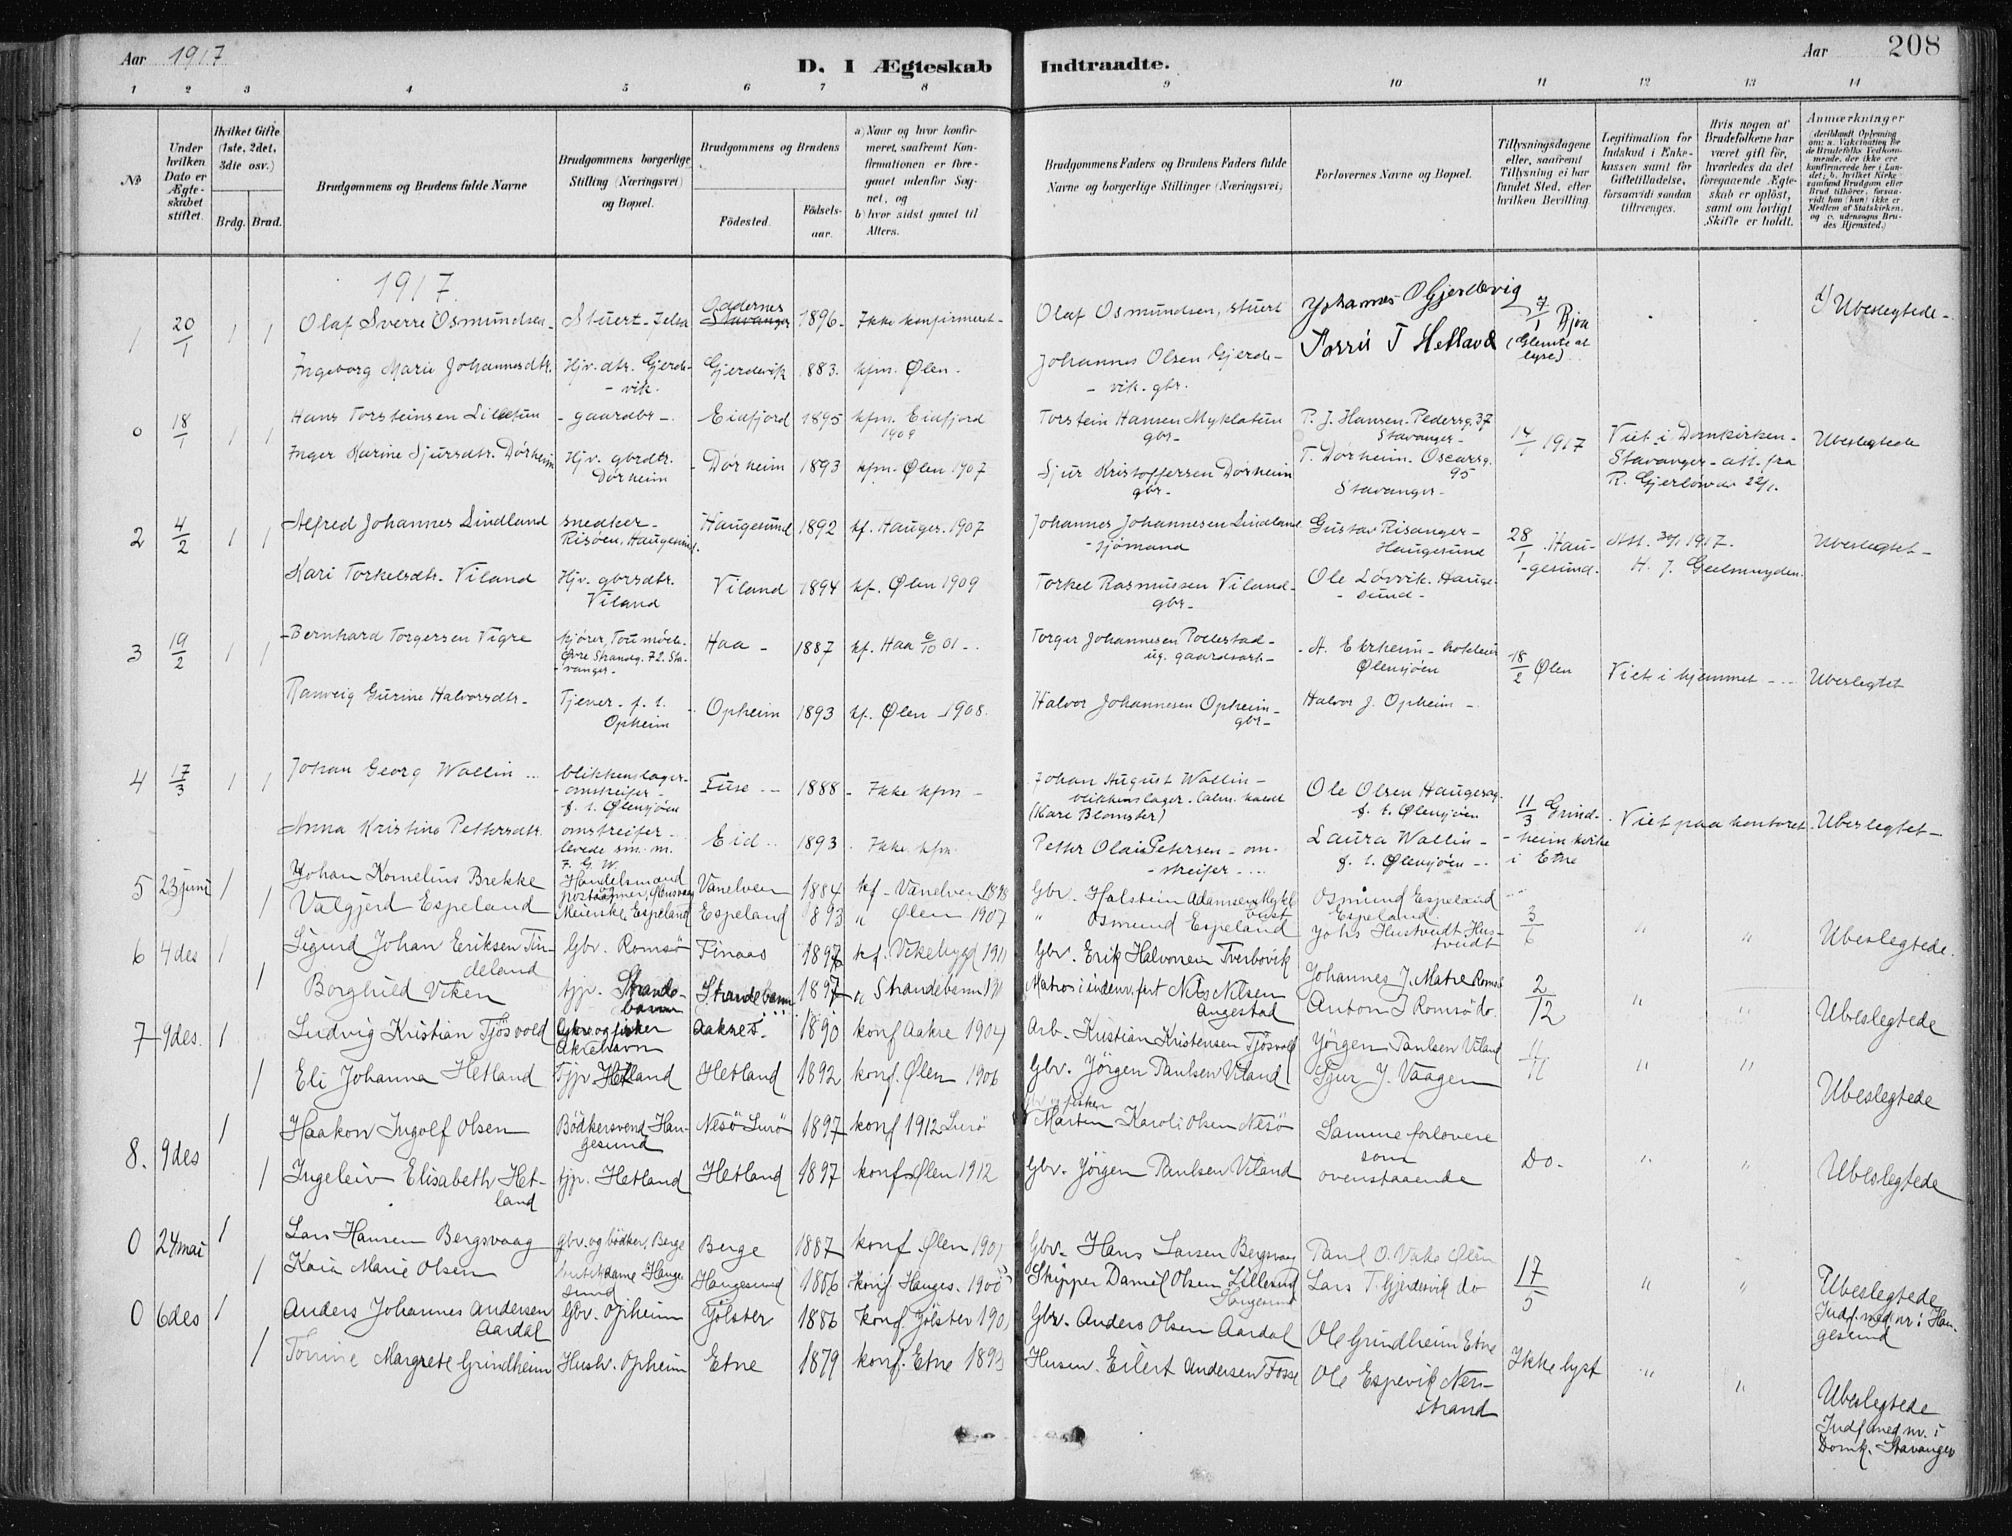 Aar 1917
D. I Ægteskab Indtraadte.
Aar 208
1 2 3 4 5 6 7 8 9 10 11 12 13 14
No
Under hvilken Dato er Ægteskabet stiftet.
Hvilket Gifte (1ste, 2det, 3die osv.)
Brdg. Brud.
Brudgommens og Brudens fulde Navne
Brudgommens borgerlige Stilling (Næringsvei) og Bopæl.
Brudgommens og Brudens
Födested.
Födselsaar.
a) Naar og hvor konfirmeret, saafremt Konfirmationen er foregaaet udenfor Sognet, og
b) hvor sidst gaaet til Alters.
Brudgommens Faders og Brudens Faders fulde Navne og borgerlige Stillinger (Næringsvei)
Forlovernes Navne og Bopæl.
Tillysningsdagene eller, saafremt Tillysning ei har fundet Sted, efter hvilken Bevilling
Legitimation for Indskud i Enkekassen samt for Giftetilladelse, forsaavidt saadan tiltrænges.
Hvis nogen af Brudefolkene har været gift för, hvorledes da det foregaaende Ægteskab er oplöst, samt om lovligt Skifte er holdt.
Anmærkninger
(deriblandt Oplysning om: a. Vakcination for de Brudefolks Vedkommende, der ikke ere konfirmerede her i Landet; b. hvilket Kirkesamfund Brudgom eller Brud tilhörer, forsaavidt han (hun) ikke er Medlem af Statskirken, og c. udensogns Brudes Hjemsted.)
1917.
1 20/1 1 1 Olaf Sverre Osmundsen - Stuert - Jelsa Oddernes Stavanger 1896 - Ikke konfirmeret - Olaf Osmundsen, stuert Johannes O Gjerdevig 7/1 Bjoa d/ Ubeslegtede -
Ingeborg Marie Johannesdtr. Hjv. dtr. Gjerde- - vik. Gjerdevik 1883. kfm. Ølen. Johannes Olsen Gjerde- - vik. gbr. T Hetland (Glemte at lyse)
0 18/1 1 1 Hans Torsteinsen Lilletun - gaardbr - Eidfjord 1895 kfm. Eidfjord 1909 Torstein Hansen Myklatun gbr - P. J. Hansen - Pedersg. 37 Stavanger - 14/1 1917 Viet i Domkirken - Ubeslegtede
Inger Karine Sjursdtr. Dörheim Hjv. gbrdtr. Dörheim Dörheim 1893 kfm. Ølen 1907 Sjur Kristoffersen Dörheim gbr - T. Dörheim - Oscarsg. 95 Stavanger - Stavanger - att. fra R. Gjerlöw av 22/1.
2 4/2 1 1 Alfred Johannes Lindland snedker - Risöen, Haugesund. Haugesund 1892 kf. Hauges. 1907 Johannes Johannesen Lindland - sjömand Gustav Risanger - Haugesund 28/1 Hau- - gesund. Att. 30/1 1917. H. J. Geelmuyden. Ubeslegtet -
Kari Torkelsdtr. Viland Hjv. gbrsdtr. Viland Viland 1894 kf. Ølen 1909 Torkel Rasmussen Viland - gbr - Ole Lövvik. Hauge- - sund -
3 19/2 1 1 Bernhard Torgersen Vigre kjörer, Tou mölle Øvre Strandg. 72. Sta- - vanger - Haa - 1887 kf. Haa 6/10 01 - Torger Johannesen Pollestad - ug. gaardsarb - A. Ekrheim - hoteleier Ølensjöen 18/2 Ølen Viet i hjemmet - Ubeslegtet
Ranveig Gurine Halvorsdtr - Tjener - f. t. Opheim Opheim 1893 kf. Ølen - 1908. Halvor Johannesen Opheim - gbr - Halvor J. Opheim -
4 17/3 1 1 Johan Georg Wallin blikkenslager - - omstreifer - f. t. Ølensjöen Fuse - 1888 - Ikke kfm - Johan August Wallin - blikkenslager - (Kare Blomster) Ole Olsen Haugesag f. t. Ølensjöen 11/3 Grind- - heim kirke i Etne Viet paa kontoret. Ubeslegtet -
Anna Kristine Pettersdtr. omstreifer - levede sm. m. J. G. W. Eid 1893 Ikke kfm. Petter Olai Petersen - om- - streifer - Laura Wallin - f. t. Ølensjöen -
5 23 juni 1 Johan Kornelius Brekke Handelsmand postaabner, Vanelven 1884 kf - Vanelven 1898 Gbr. Halstein Adamsen Myklebust Osmund Espeland Espeland. 3/6 " " Ubeslegtede.
1 Valgjerd Espeland Meierske, Espeland Espeland 1893 " Ølen 1907 " Osmund Espeland Johs Hustvedt Hustvedt
6 4 des 1 Sigurd Johan Eriksen Tindeland Gbr. Romsö Finaas 1897 kf. Vikebygd 1911 Gbr. Erik Halvorsen Tverbovik Johannes J. Matre Romsö 2/12 " " Ubeslegtede
1 Borghild Viken tjp. Strandebarm Strandebarm 1897 " Strandebarm 1911 Matros i indenr. fart Nils Nilsen Angestad Anton J Romsö do.
7 9 des. 1 Ludvig Kristian Tjösvold Gbr. og fisker Akrehavn Aakre s. 1890 konf Aakre 1904 Arb. Kristian Kristensen Tjösvold Jörgen Paulsen Viland 11/11 " " Ubeslegtede
1 Eli Johanna Hetland Tjp. Hetland Hetland 1892 konf. Ølen 1906 Gbr. Jörgen Paulsen Viland Sjur J. Vaagen
8. 9 des 1 Haakon Ingolf Olsen Bödkersvend, Haugesund Nesö Lurö 1897 konf 1912 Lurö Gbr og fisker Marten Karoli Olsen Nesö Samme forlovere som ovenstaaende Do. " " Ubeslegtede
1 Ingeleiv Elisabeth Hetland tjp. Hetland Hetland 1897 konf. Ølen 1912 Gbr. Jörgen Paulsen Viland
0 24 mai 1 Lars Hansen Bergsvaag gbr. og bödker, Berge Berge 1887 konf. Ølen 1901 Gbr. Hans Larsen Bergsvaag Paul O. Vake Ølen 17/5 " " Ubeslegtede Indf. med nr. i Haugesund
1 Kaia Marie Olsen Haugesund Haugesund 1886 Konf Hauges. 1900 Skipper Daniel Olsen Lillesund Haugesund Lars T. Gjerdevik do
0 6 des 1 Anders Johannes Andersen Aardal Gbr. Opheim Jölster 1886 Konf Jölster 1901 Gbr. Anders Olsen Aardal Ole Grindheim Etne Ikke lyst " " Ubeslegtede Indf. med nr. i Domk. Stavanger
1 Tomine Margrete Grindheim Hush. Opheim Etne 1879 konf. Etne 1893 Husm. Eilert Andersen Fosse Ole Espevik Nerstrand